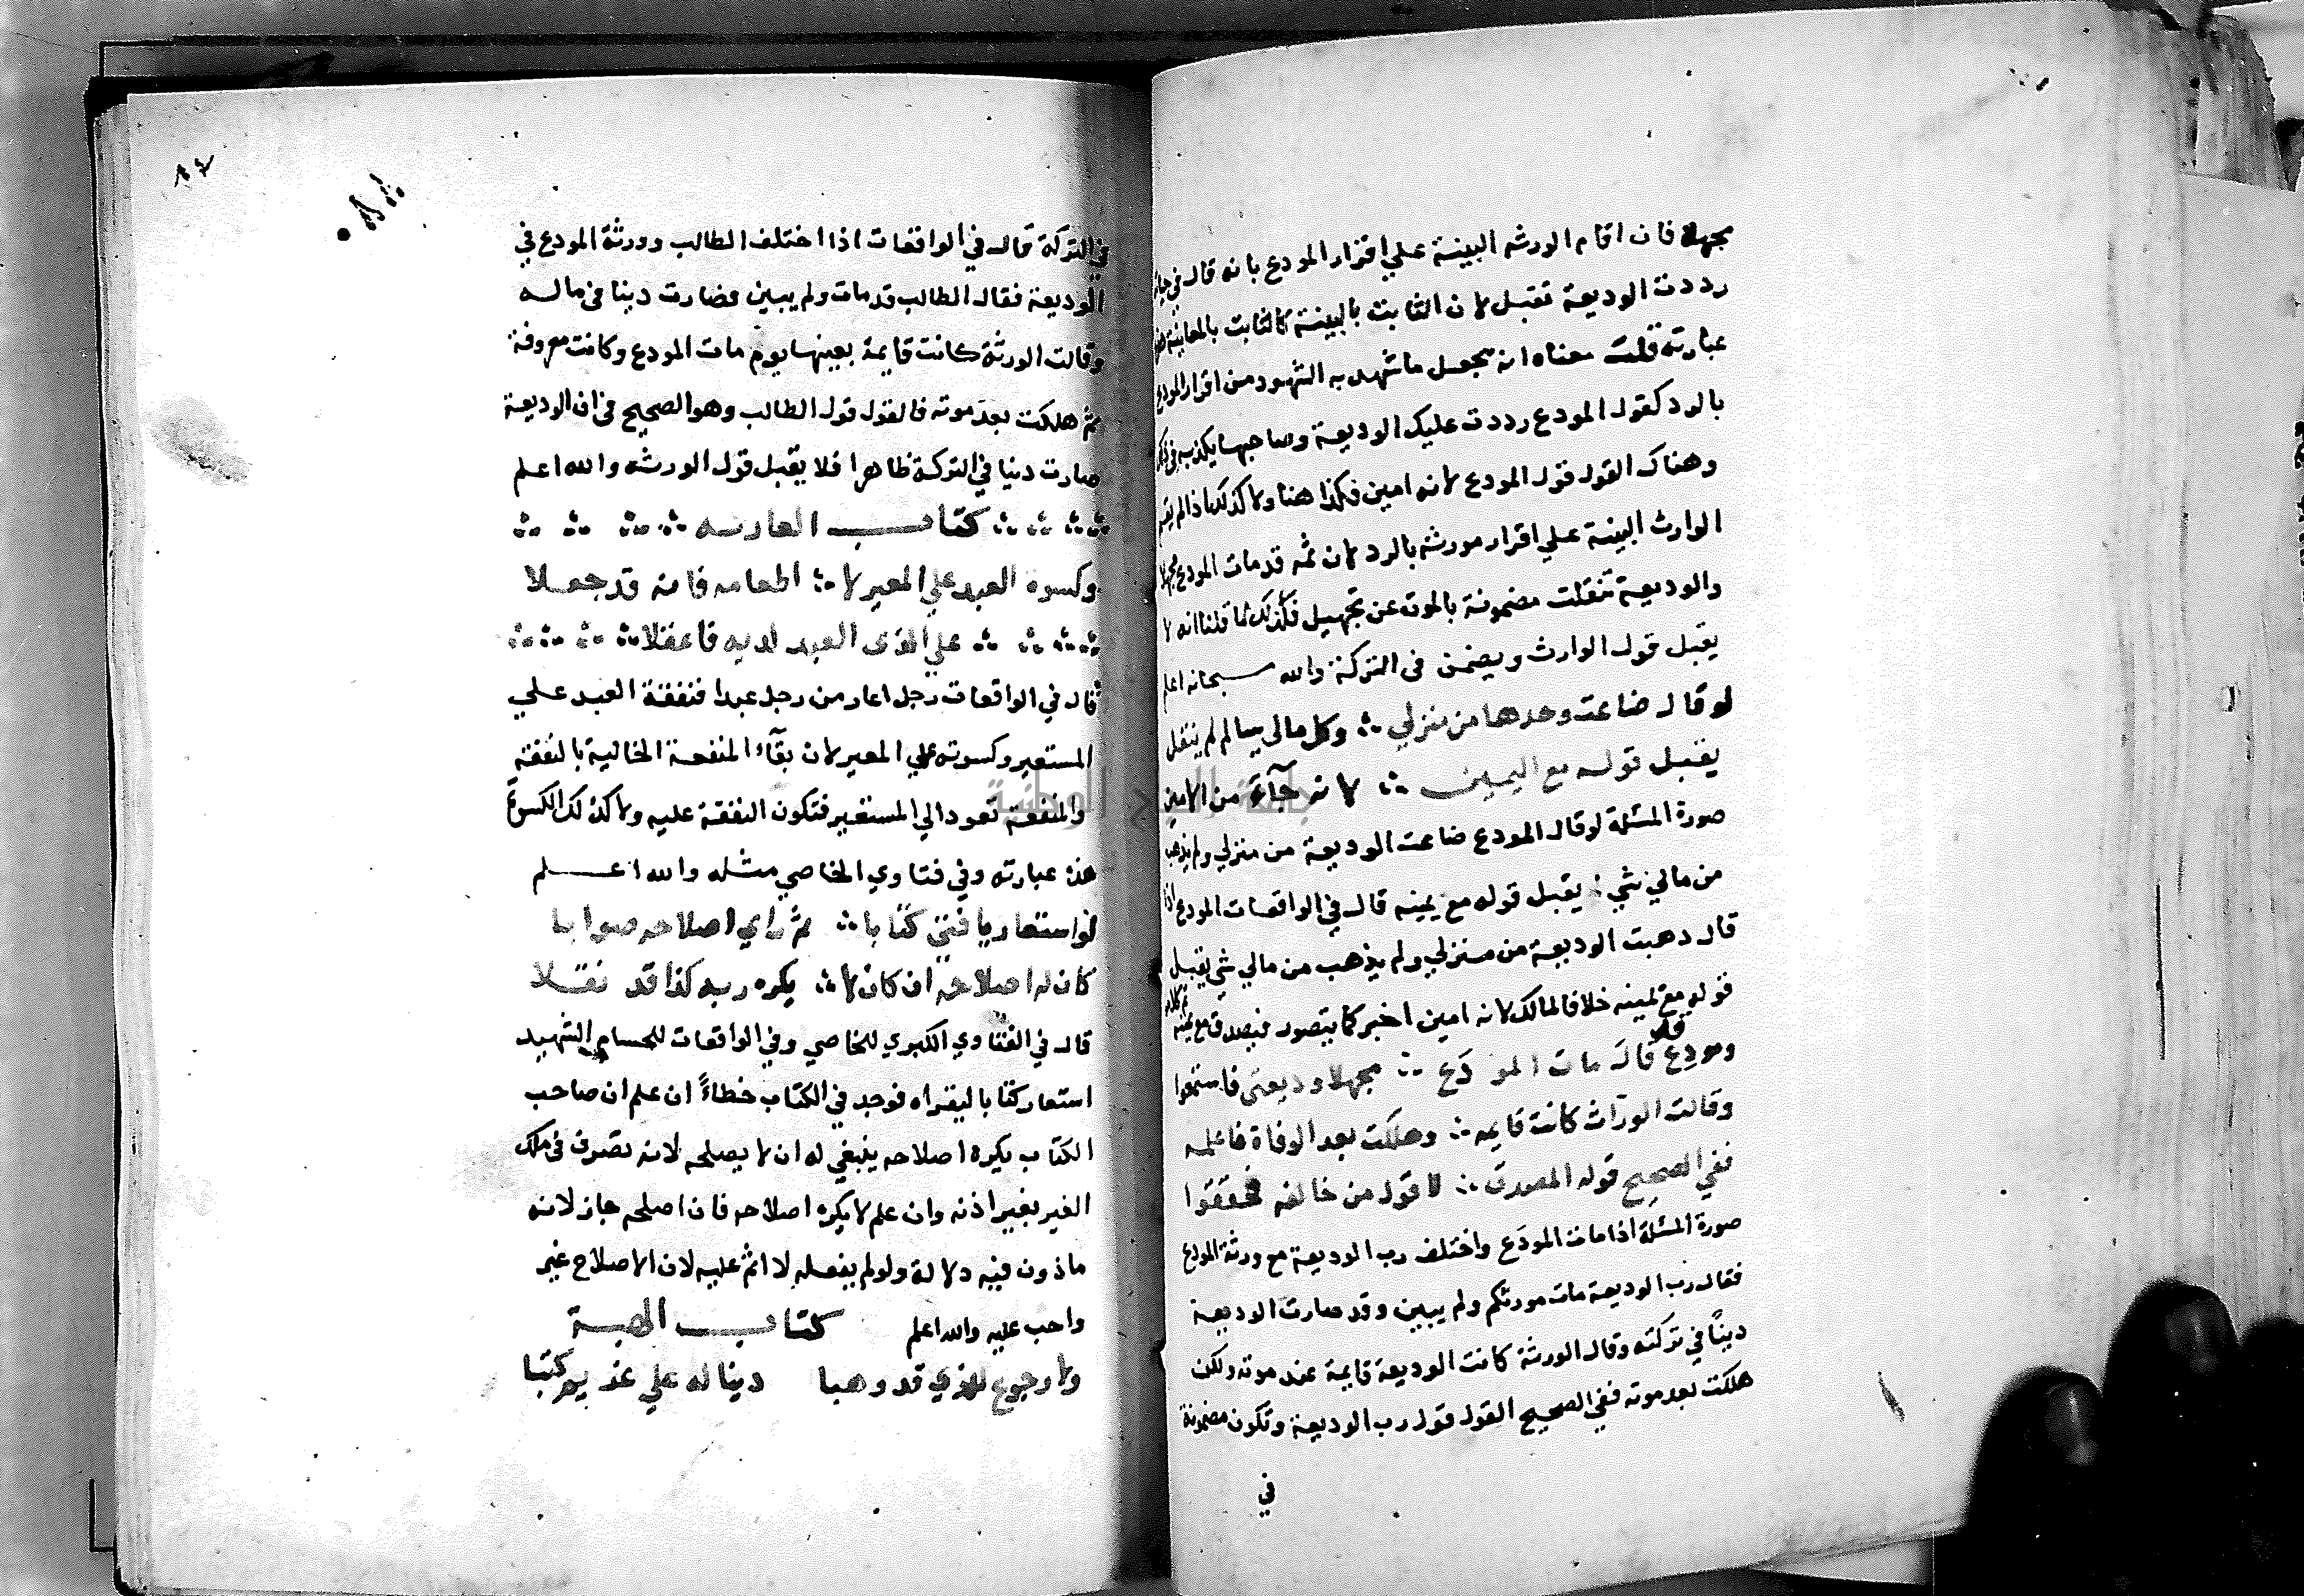 مجهلا فان اقام الورثه البينة علي اقرار المودع بانه قال في حياته
رددت الوديعة تقبل لان الثابت بالبينة كالثابت بالمعاينة هذه
عبارته قلت معناه انه يجعل ما شهد به الشهود من اقرار المودع
بالرد كقول المودع رددت عليك الوديعة وصاحبها يكذبه في ذلك
وهناك القول قول المودع لانه امين فكذا هنا ولا كذلك اذا لم يقم
الوارث البينة علي اقرار مورثه بالرد لان ثمه قد مات المودع مجهلا
والوديعة تنقلت مضمونة بالموت عن تجهيل فلذلك قلنا انه لا
يقبل قول الوارث ويضمن في التركة والله سبحانه اعلم
لو قال ضاعت وحدها من منزلي ∴ وكل مالي سالم لم ينتقل
يقبل قوله مع اليمين ∴ لانه جآء من الامين
صورة المسئلة لو قال المودع ضاعت الوديعة من منزلي ولم يذهب
من مالي شيء يقبل قوله مع يمينه قال في الواقعات المودع اذا
قال ذهبت الوديعة من منزلي ولم يذهب من مالي شي يقبل
قوله مع يمينه خلافا لمالك لانه امين اخبر كما يتصور فيصدق مع يمينه
ومودع قال قد مات المودَع ∴ مجهلا وديعتي فاستمعوا
وقالت الورّاث كانت قايمه ∴ وهلكت بعد الوفاة فاعلمه
ففي الصحيح قوله المصدق ∴ لا قول من خالفه فحققوا
صورة المسئلة اذا مات المودَع واختلف رب الوديعة مع ورثة المودع
فقال رب الوديعة مات مورثكم ولم يبين وقد صارت الوديعة
دينًا في تركته وقال الورثة كانت الوديعة قايمة عند موته ولكن
هلكت بعد موته ففي الصحيح القول قول رب الوديعة وتكون مضمونة
في
في التركة قال في الواقعات اذا اختلف الطالب وورثة المودع في
الوديعة فقال الطالب قد مات ولم يبين فصارت دينا في ماله
وقالت الورثة كانت قايمة بعينها يوم مات المودع وكانت معروفة
ثم هلكت بعد موته فالقول قول الطالب وهو الصحيح في ان الوديعة
صارت دينا في التركة ظاهرا فلا يقبل قول الورثه والله اعلم
كتاب العاريه
وكسوة العبد علي المعير لا ∴ اطعامه فانه قد جعلا
علي الذي العبد لديه فاعقلا
قال في الواقعات رجل اعار من رجل عبدا فنفقة العبد علي
المستعير وكسوته علي المعير لان بقآء المنفعة الخالية بالنفقة
والمنفعة تعود الي المستعير فتكون النفقة عليه ولا كذلك الكسوة
هذه عبارته وفي فتاوي الخاصي مثله والله اعلم
لو استعار يا فتي كتابا ∴ ثم راي اصلاحه صوابا
كان له اصلاحه ان كان لا ∴ يكره ربه كذا قد نقلا
قال في الفتاوي الكبري للخاصي وفي الواقعات للحسام الشهيد
استعار كتابا ليقراه فوجد في الكتاب خطاءً ان علم ان صاحب
الكتاب يكره اصلاحه ينبغي له ان لا يصلحه لانه تصرف في ملك
الغير بغير اذنه وان علم لا يكره اصلاحه فان اصلحه جاز لانه
ماذون فيه دلالة ولو لم يفعله لا اثم عليه لان الاصلاح غير
واجب عليه والله اعلم كتاب الهبة
ولا رجوع للذي قد وهبا دينا له علي غريم كتبا
جامعة النجاح الوطنية